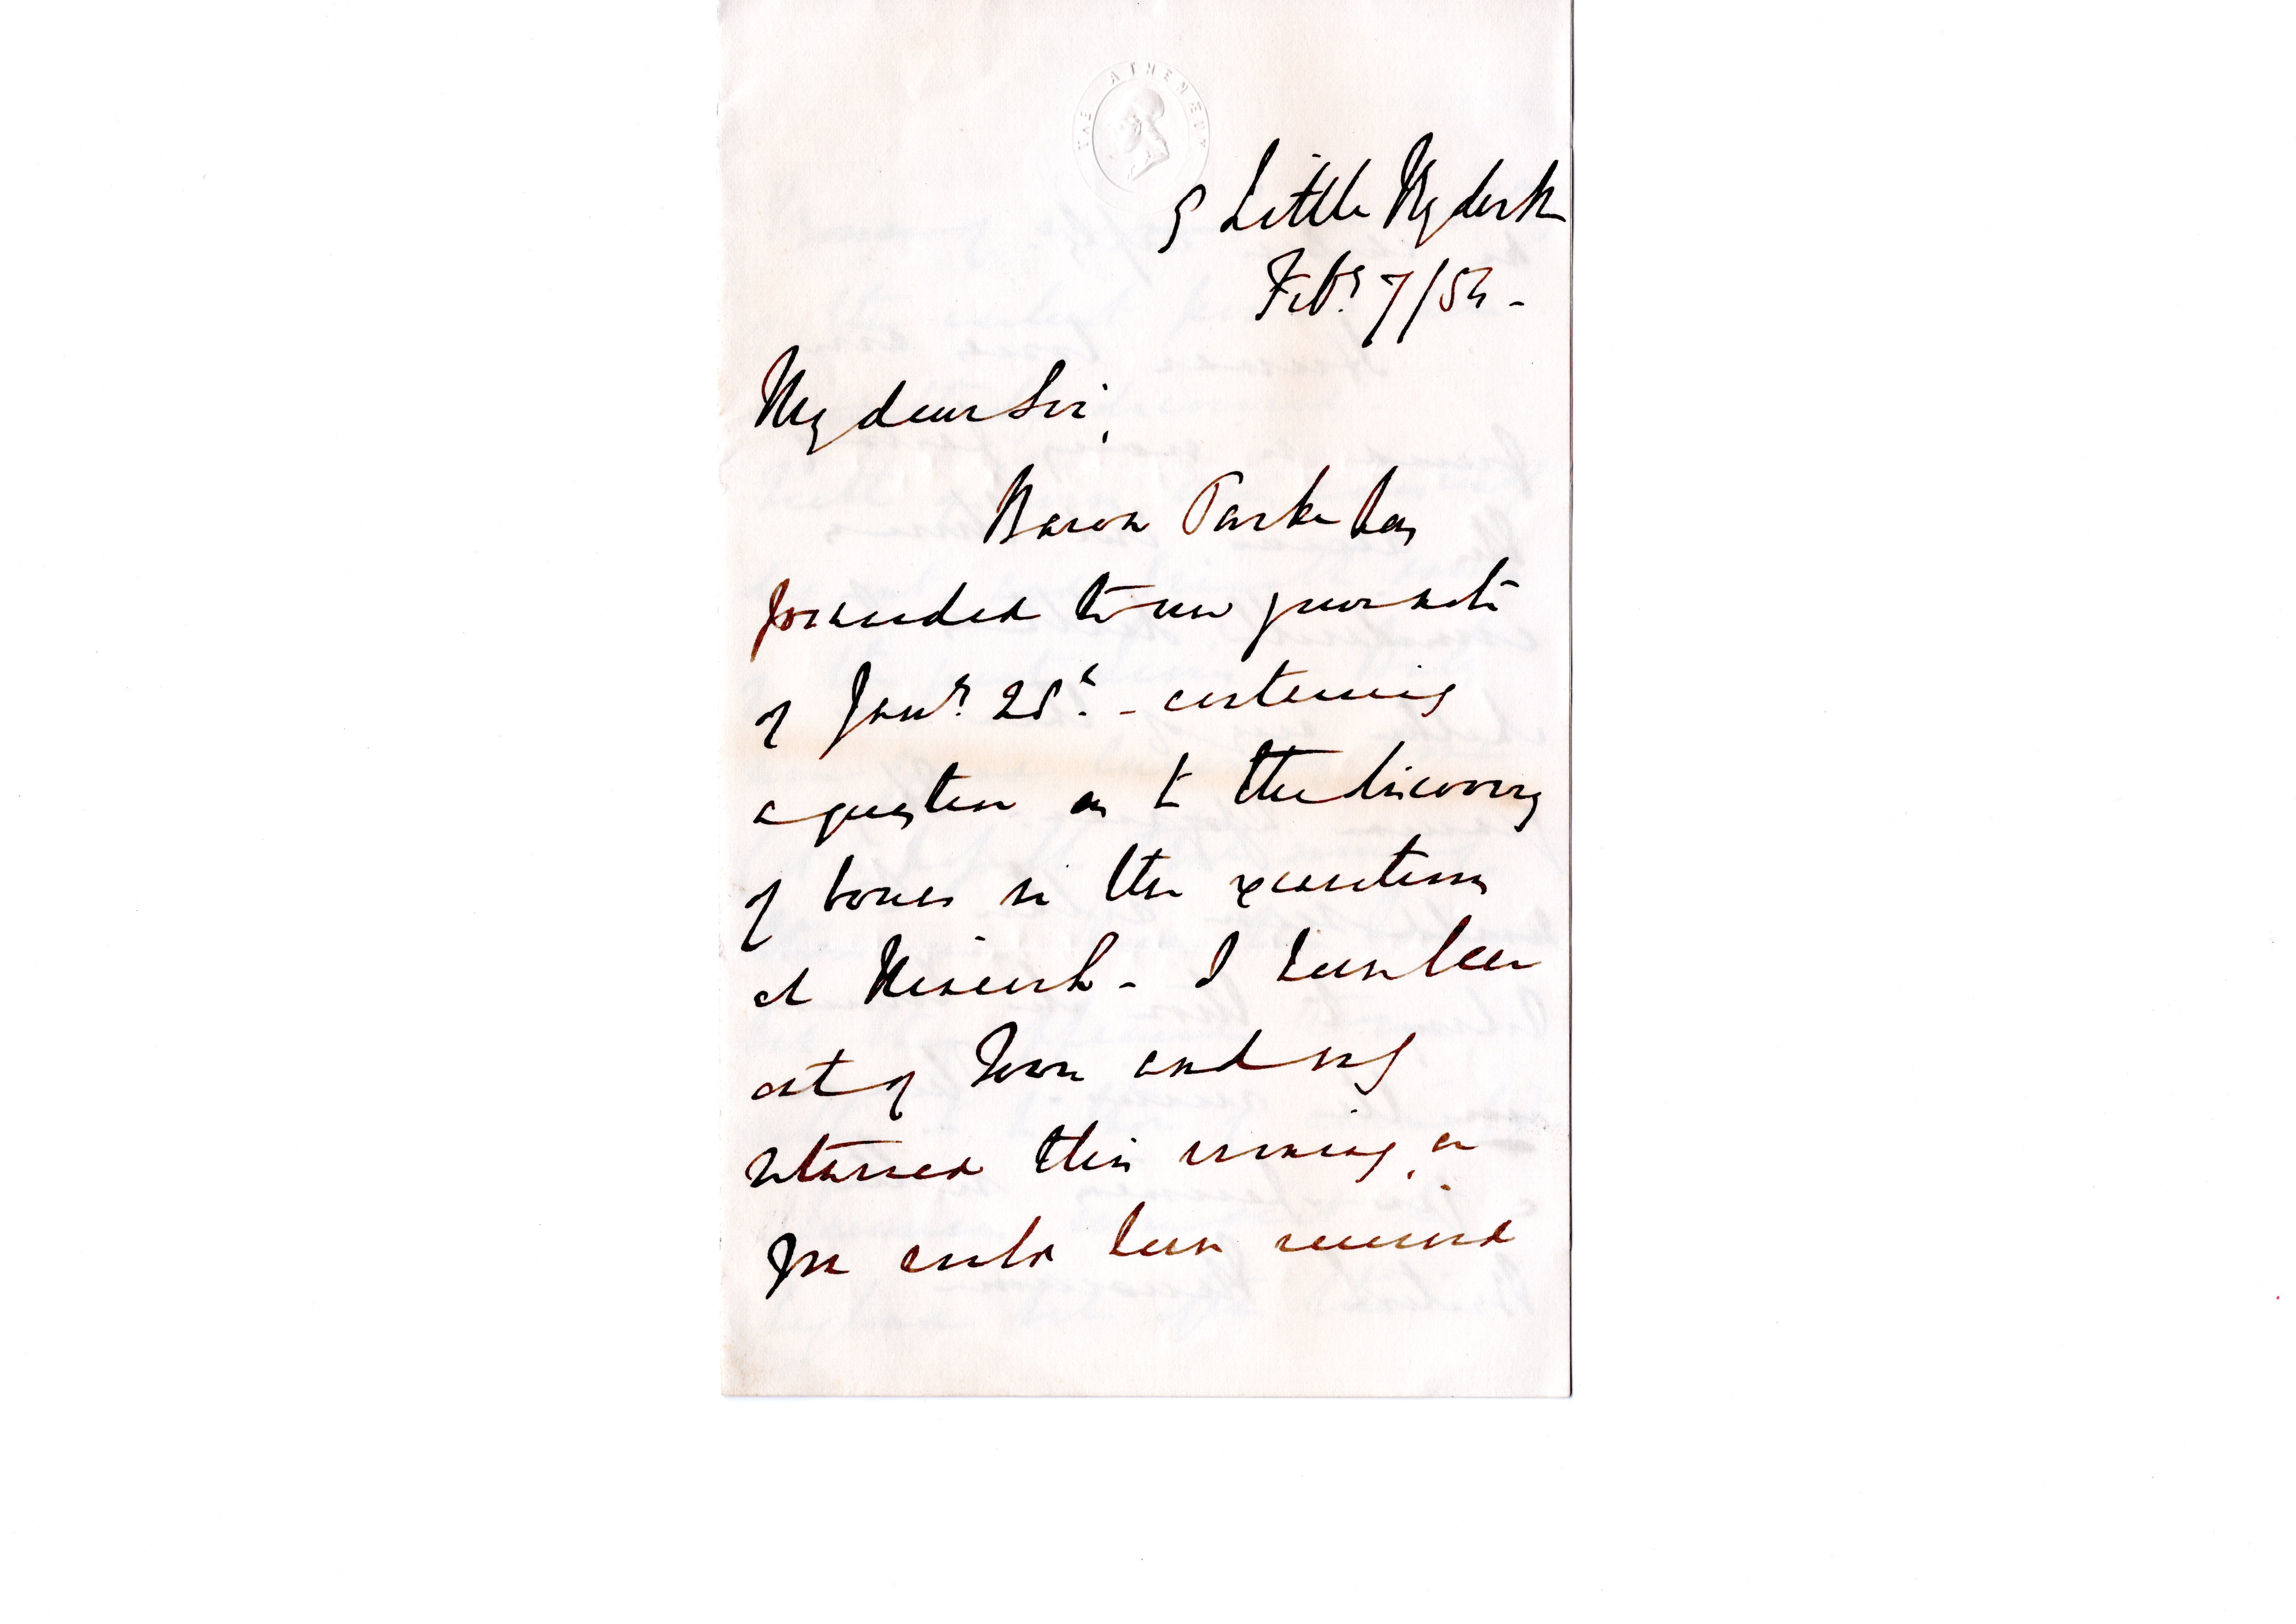 THE ATHENÆUM
9 Little Ryder St
Feby 7/54 -
My dear Sir,
Baron Parke has
forwarded to me your note
of Jany 28th - containing
a question as to the discovery
of bones in the excavations
at Nineveh - I have been
out of Town and only
returned this evening, or
you could have received